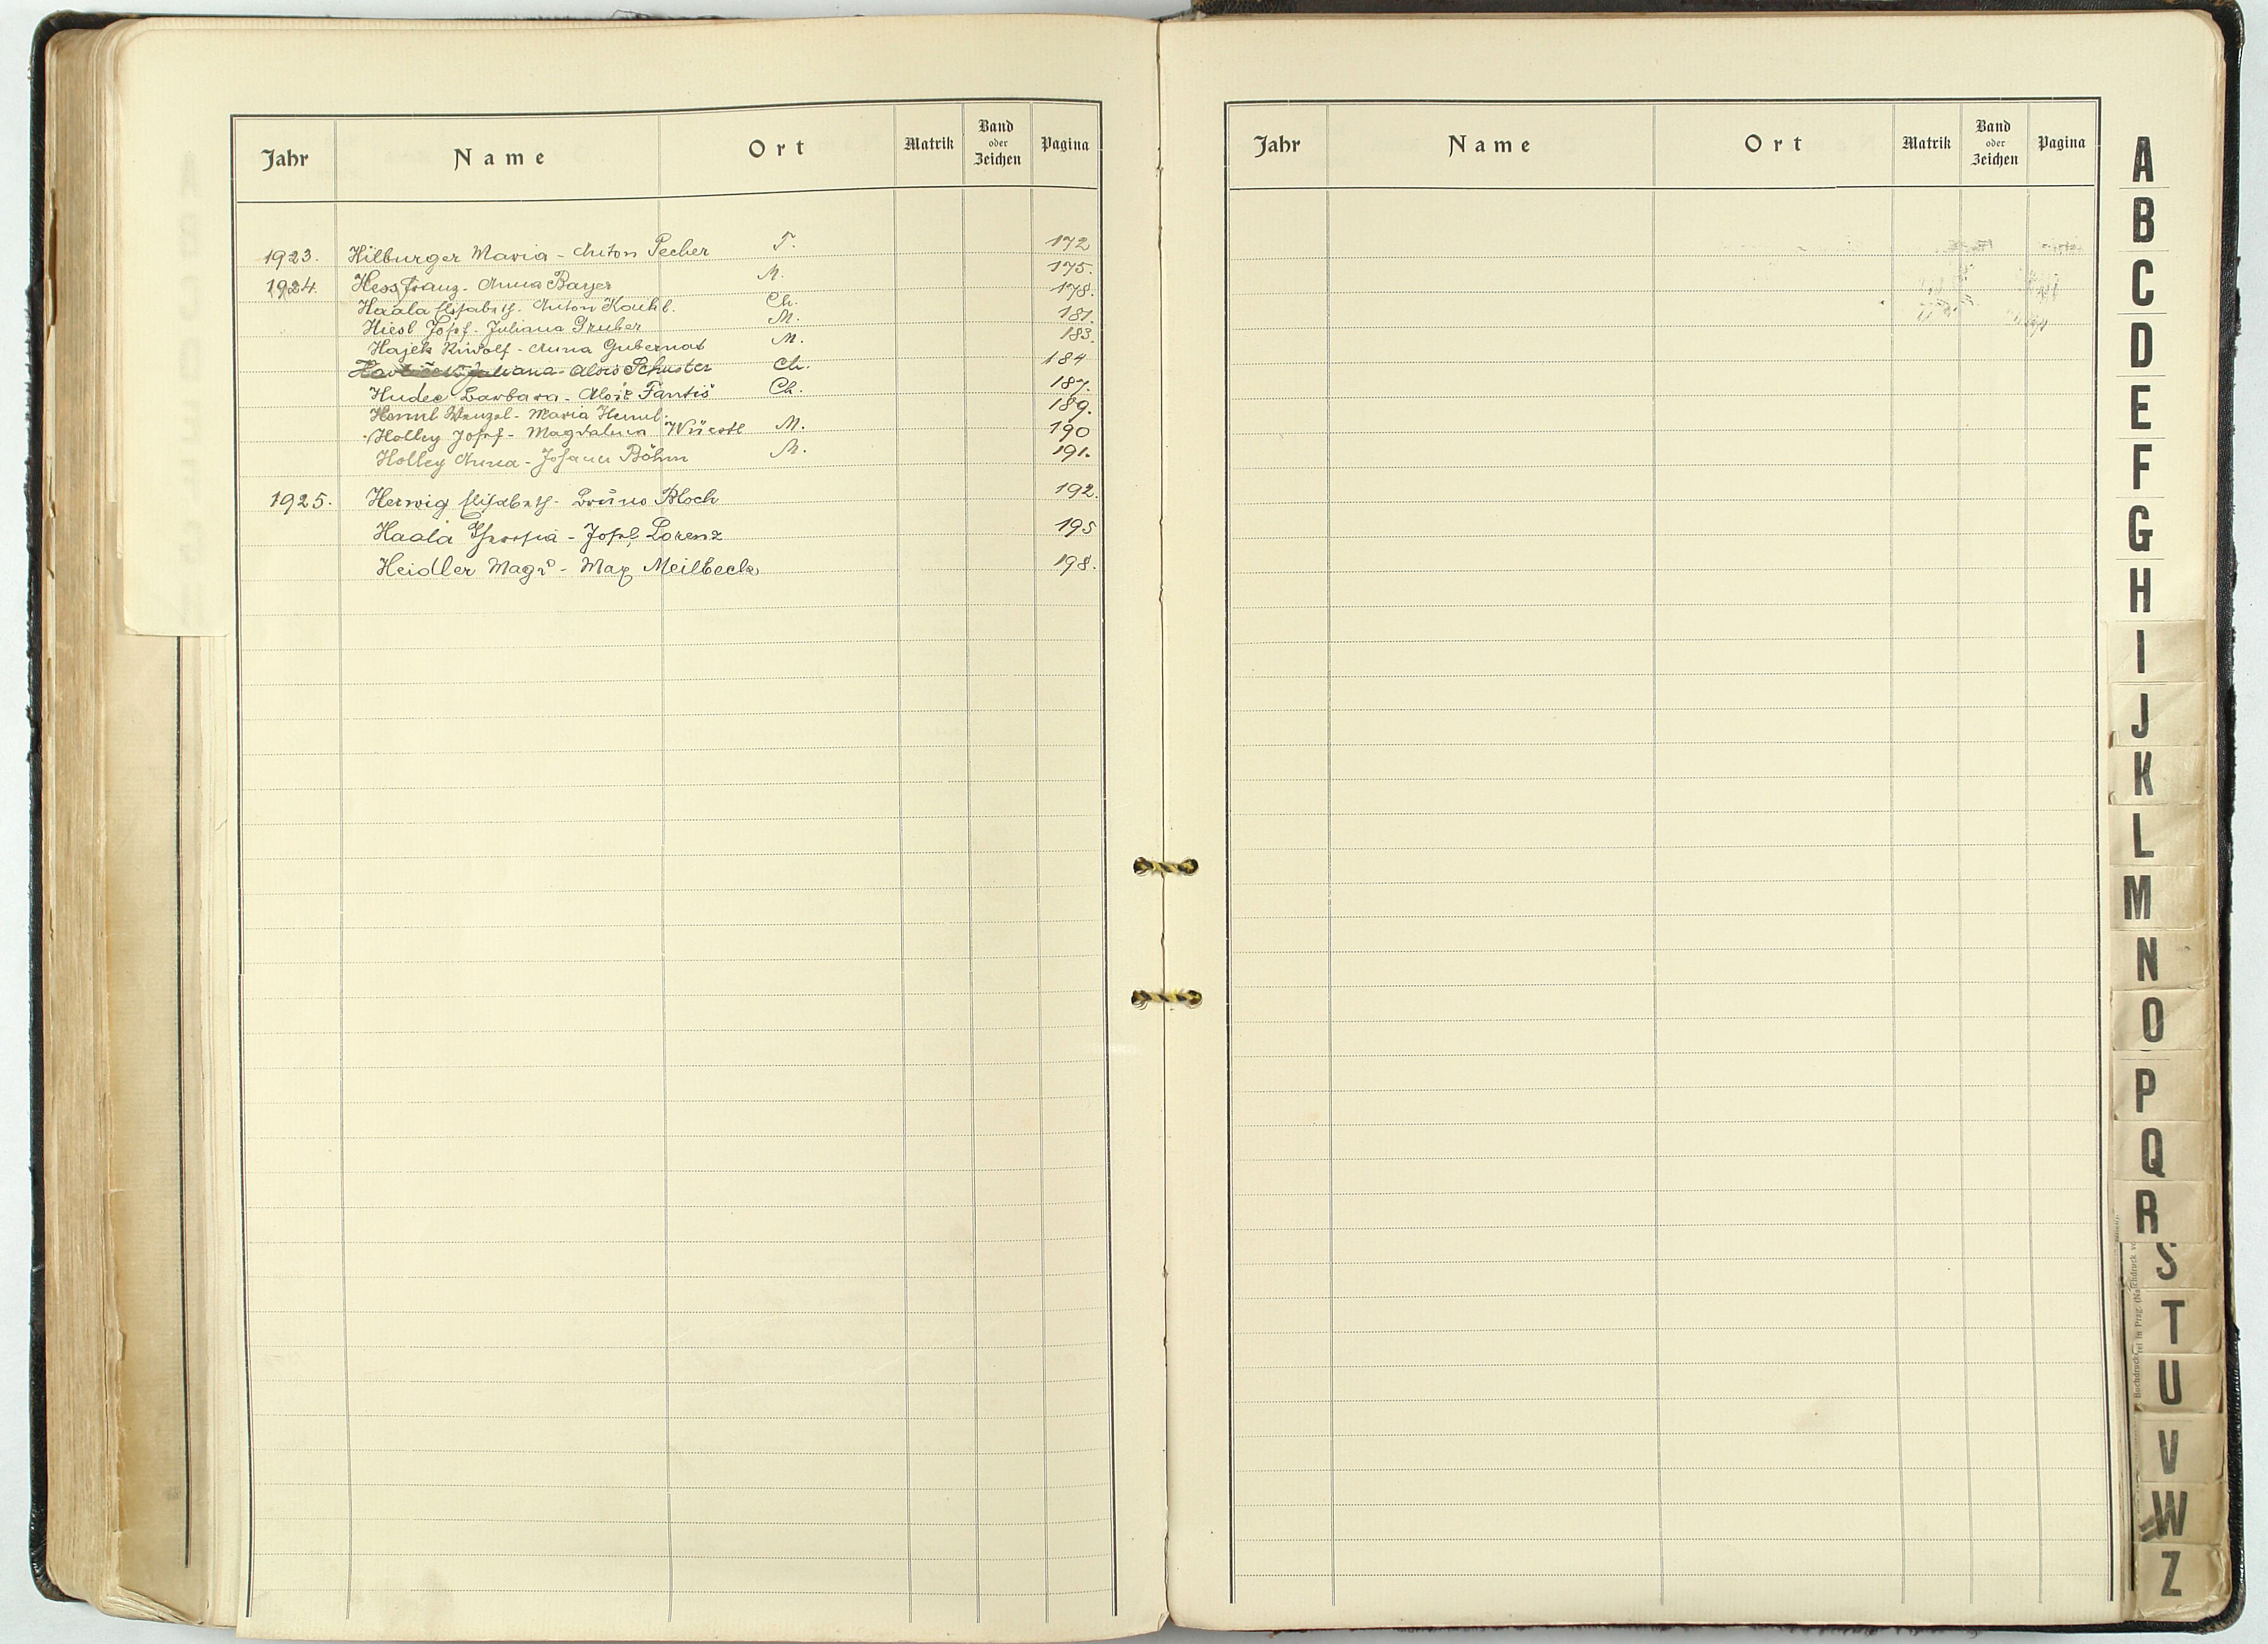 Jahr Name Ort Matrik Band oder Zeichen Pagina
1923. Hilburger Maria - Anton Pecher T. 172
1924. Hess Franz - Anna Bayer M. 175.
Haala Elisabeth - Anton Koukl. Ch. 178.
Hiesl Josef - Juliana Gruber M. 181.
Hajek Rudolf - Anna Gubernat M. 183.
Juliana - Alois Schuster Ch. 184
Hudec Barbara - Alois Fantiš Ch. 187.
Heml Wenzel - Maria Heml. 189.
Holley Josef - Magdalena Wüestl M. 190
Holley Anna - Johann Böhm M. 191.
1925. Herwig Elisabeth - Bruno Bloch 192.
Haala Theresia - Josef Lorenz 195
Heidler Magd - Max Meilbeck 198.
Jahr Name Ort Matrik Band oder Zeichen Pagina
A
B
C
D
E
F
G
H
I
J
K
L
M
N
O
P
Q
R
S
T
U
V
W
Z